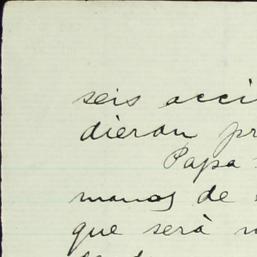 seis acci
dieron pr
Papa
manos de
que serà